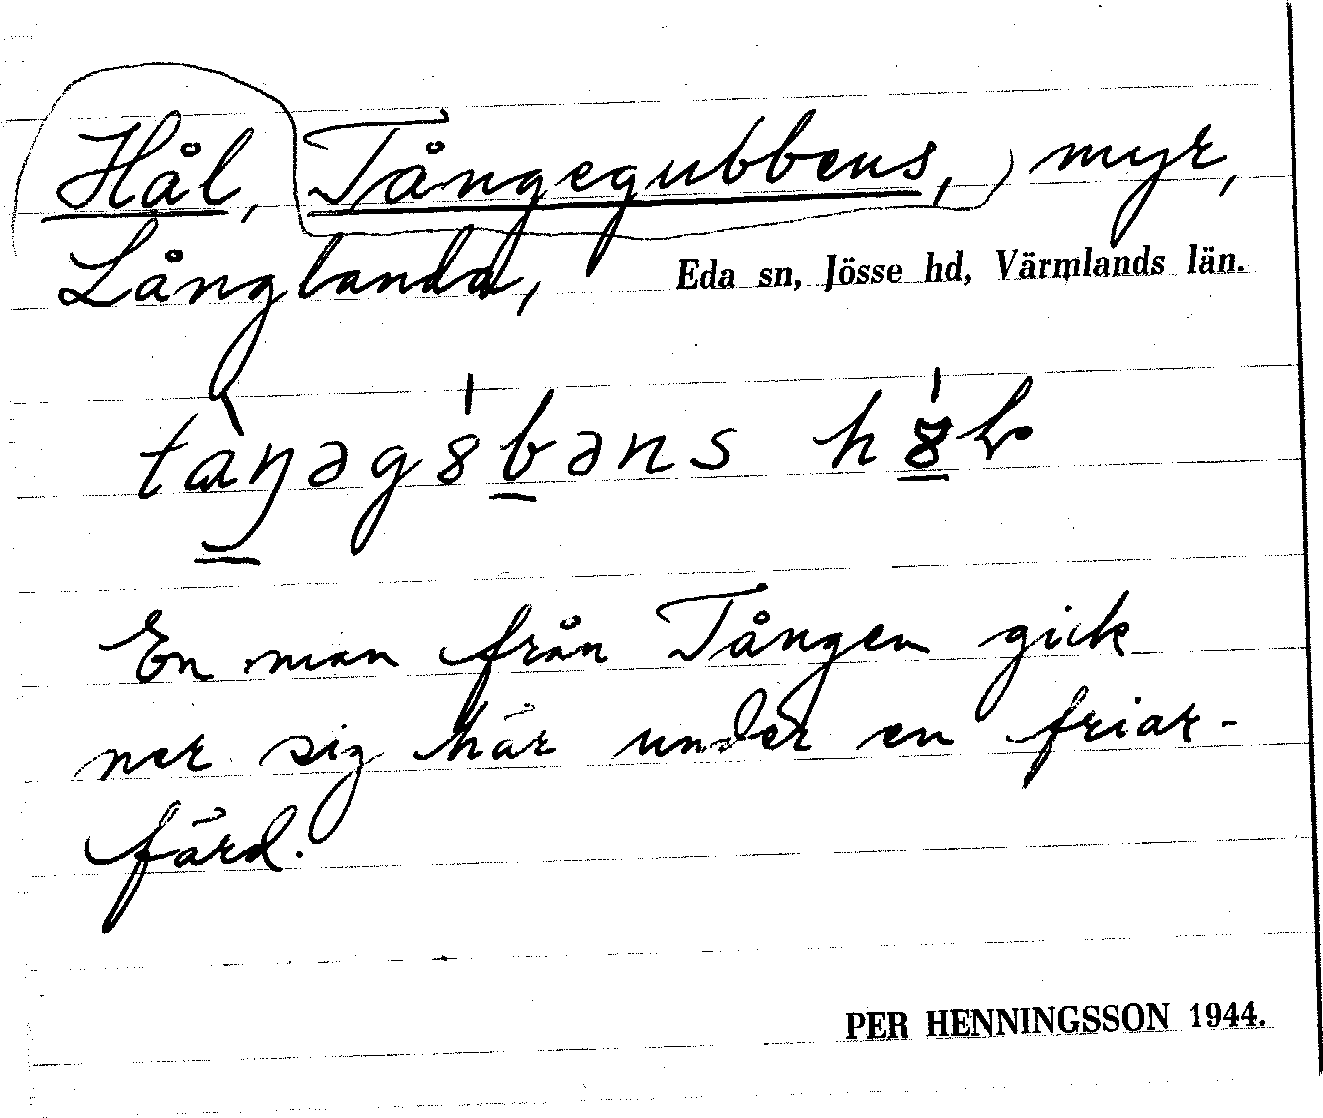 Hål, Tångegubbens, myr,
Långlanda, Eda sn, Jösse hd, Värmlands län.
tàŋəgs̍bəns
En man från Tången gick
ner sig här under en friar-
färd.
PER HENNINGSSON 1944.